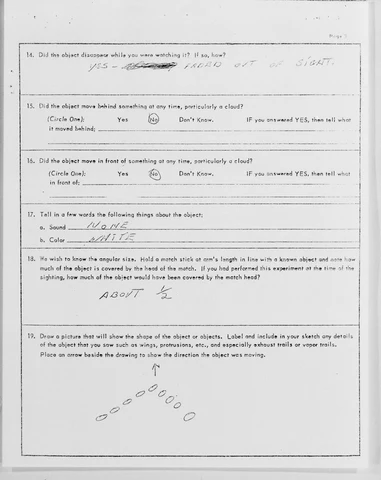 Page 5
14. Did the object disappear while you were watching it? If so, how?
YES - FADED OUT OF SIGHT.
15. Did the object move behind something at any time, particularly a cloud?
(Circle One): Yes No Don't Know. IF you answered YES, then tell what
it moved behind:
16. Did the object move in front of something at any time, particularly a cloud?
(Circle One): Yes No Don't Know. IF you answered YES, then tell what
in front of:
17. Tell in a few words the following things about the object:
a. Sound NONE
b. Color WHITE
18. We wish to know the angular size. Hold a match stick at arm's length in line with a known object and note how
much of the object is covered by the head of the match. If you had performed this experiment at the time of the
sighting, how much of the object would have been covered by the match head?
ABOUT 1/2
19. Draw a picture that will show the shape of the object or objects. Label and include in your sketch any details
of the object that you saw such as wings, protrusions, etc., and especially exhaust trails or vapor trails.
Place an arrow beside the drawing to show the direction the object was moving.